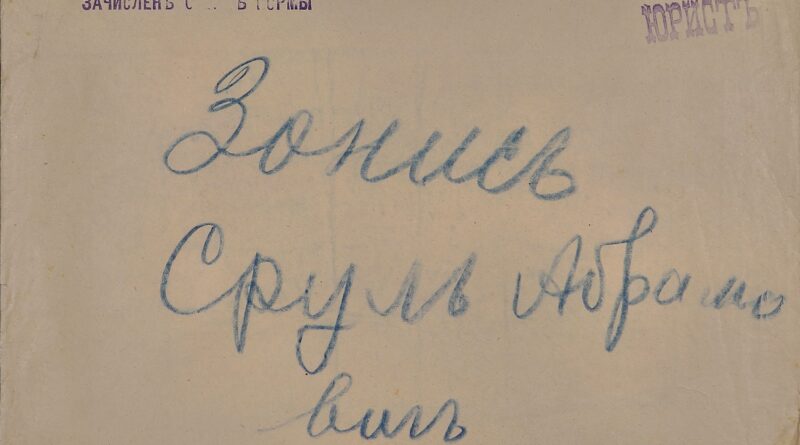 ЗАЧИСЛЕНЪ НОРМЫ
ЮРИСТЪ
Зонисъ
Сруль Абрамо
вичъ